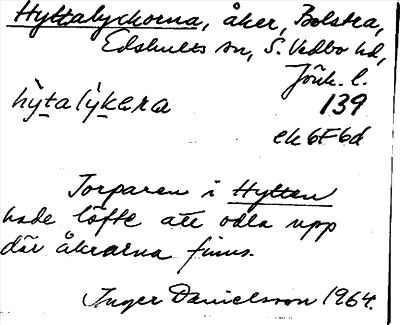 Hyttalyckorna, åker, Bolstra,
Edshults sn, S. Vedbo hd,
Jönk. l.
hỳtalỳkera 139
ek 6F6d
Torparen i Hyttan
hade löfte att odla upp
där åkrarna finns.
Inger Danielsson 1964.